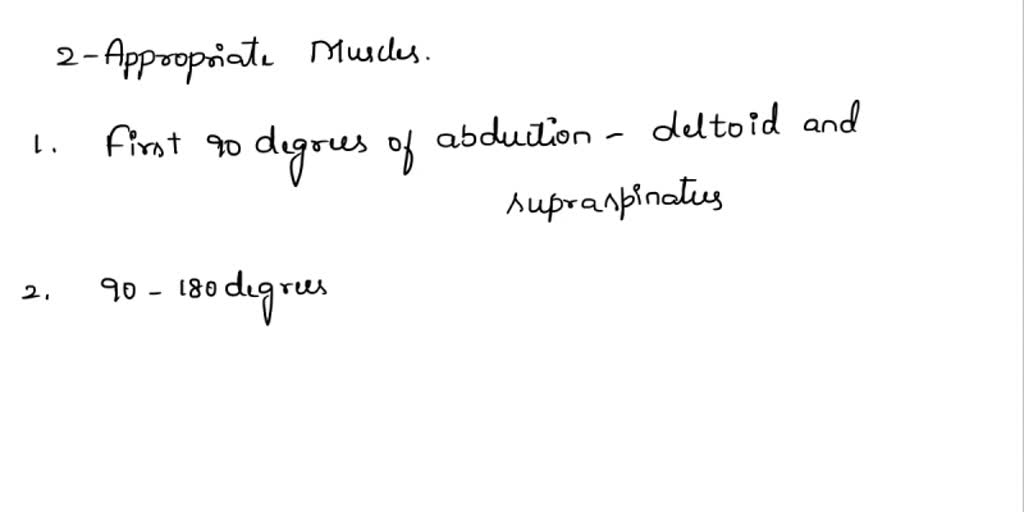 2-Appropriate Muscles.
1. First 90 degrees of abduction - deltoid and
supraspinatus
2. 90 - 180 degrees